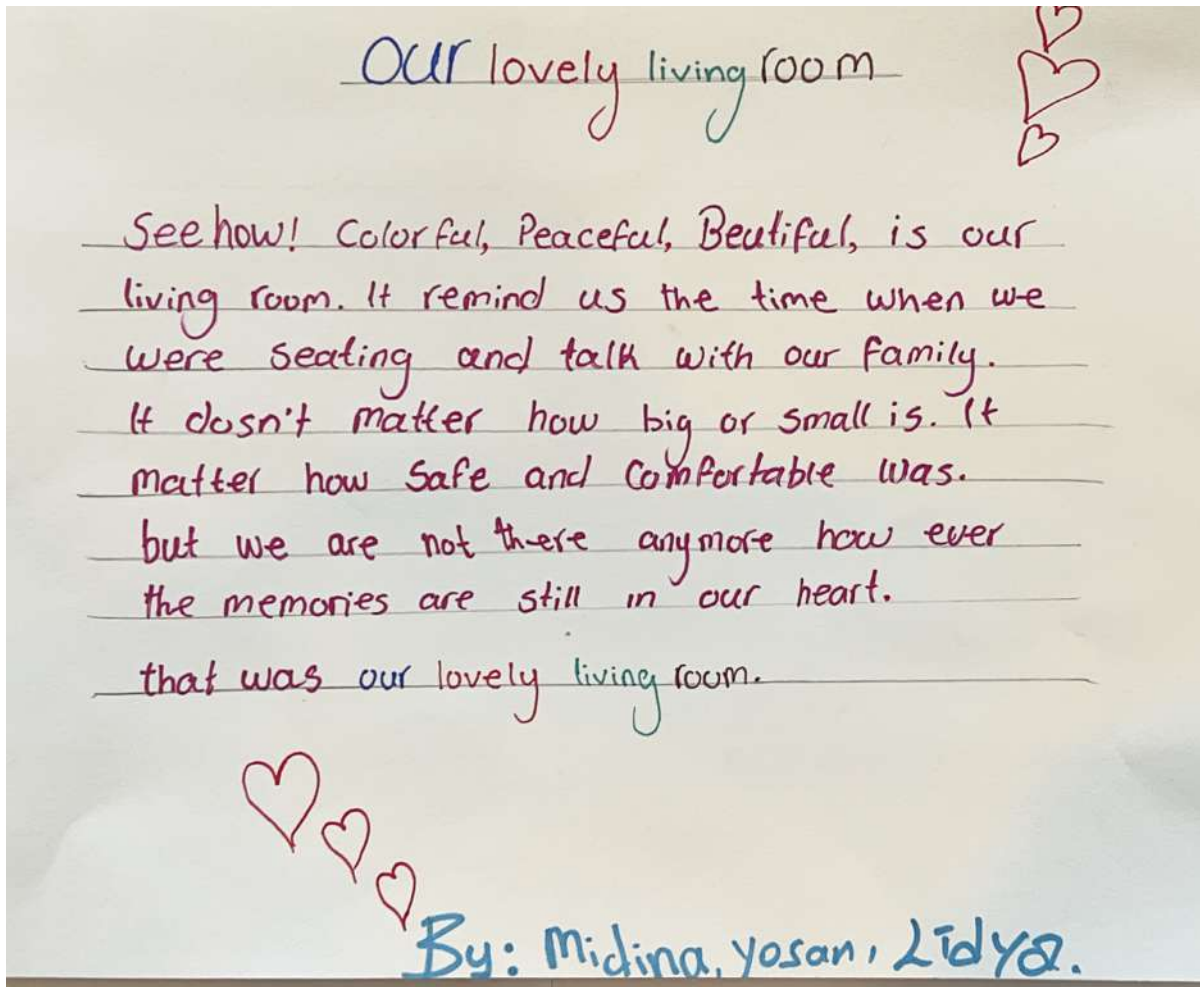 Our lovely living room
See how! Colorful, Peaceful, Beutiful, is our
living room. It remind us the time when we
were seating and talk with our family.
It dosn't matter how big or small is. It
matter how Safe and Comfortable was.
but we are not there anymore how ever
the memories are still in our heart.
that was our lovely living room.
By: Midina, yosan, Lidya.